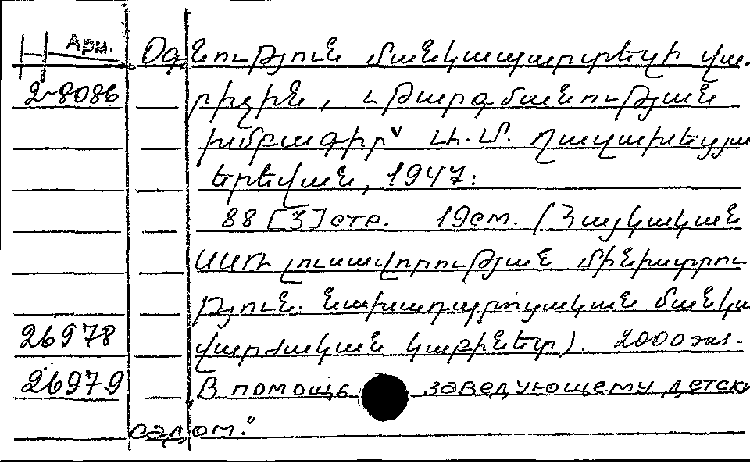 Арм. Օգնություն մանկապարտեզի վա-
2-8086 րիչին, : Թարգմանության
խմբագիր՝ Ա.Մ. Ղավախեցյա
Երևան, 1947:
88 [3] стр. 19 см. (Հայկական
ՍՍՌ լուսավորության մինիստրու
թյուն. Նախադպրոցական մանկա
26978 վարժական կաբինետ). 2000 экз.
26979 В помощь заведующему детск
садом."